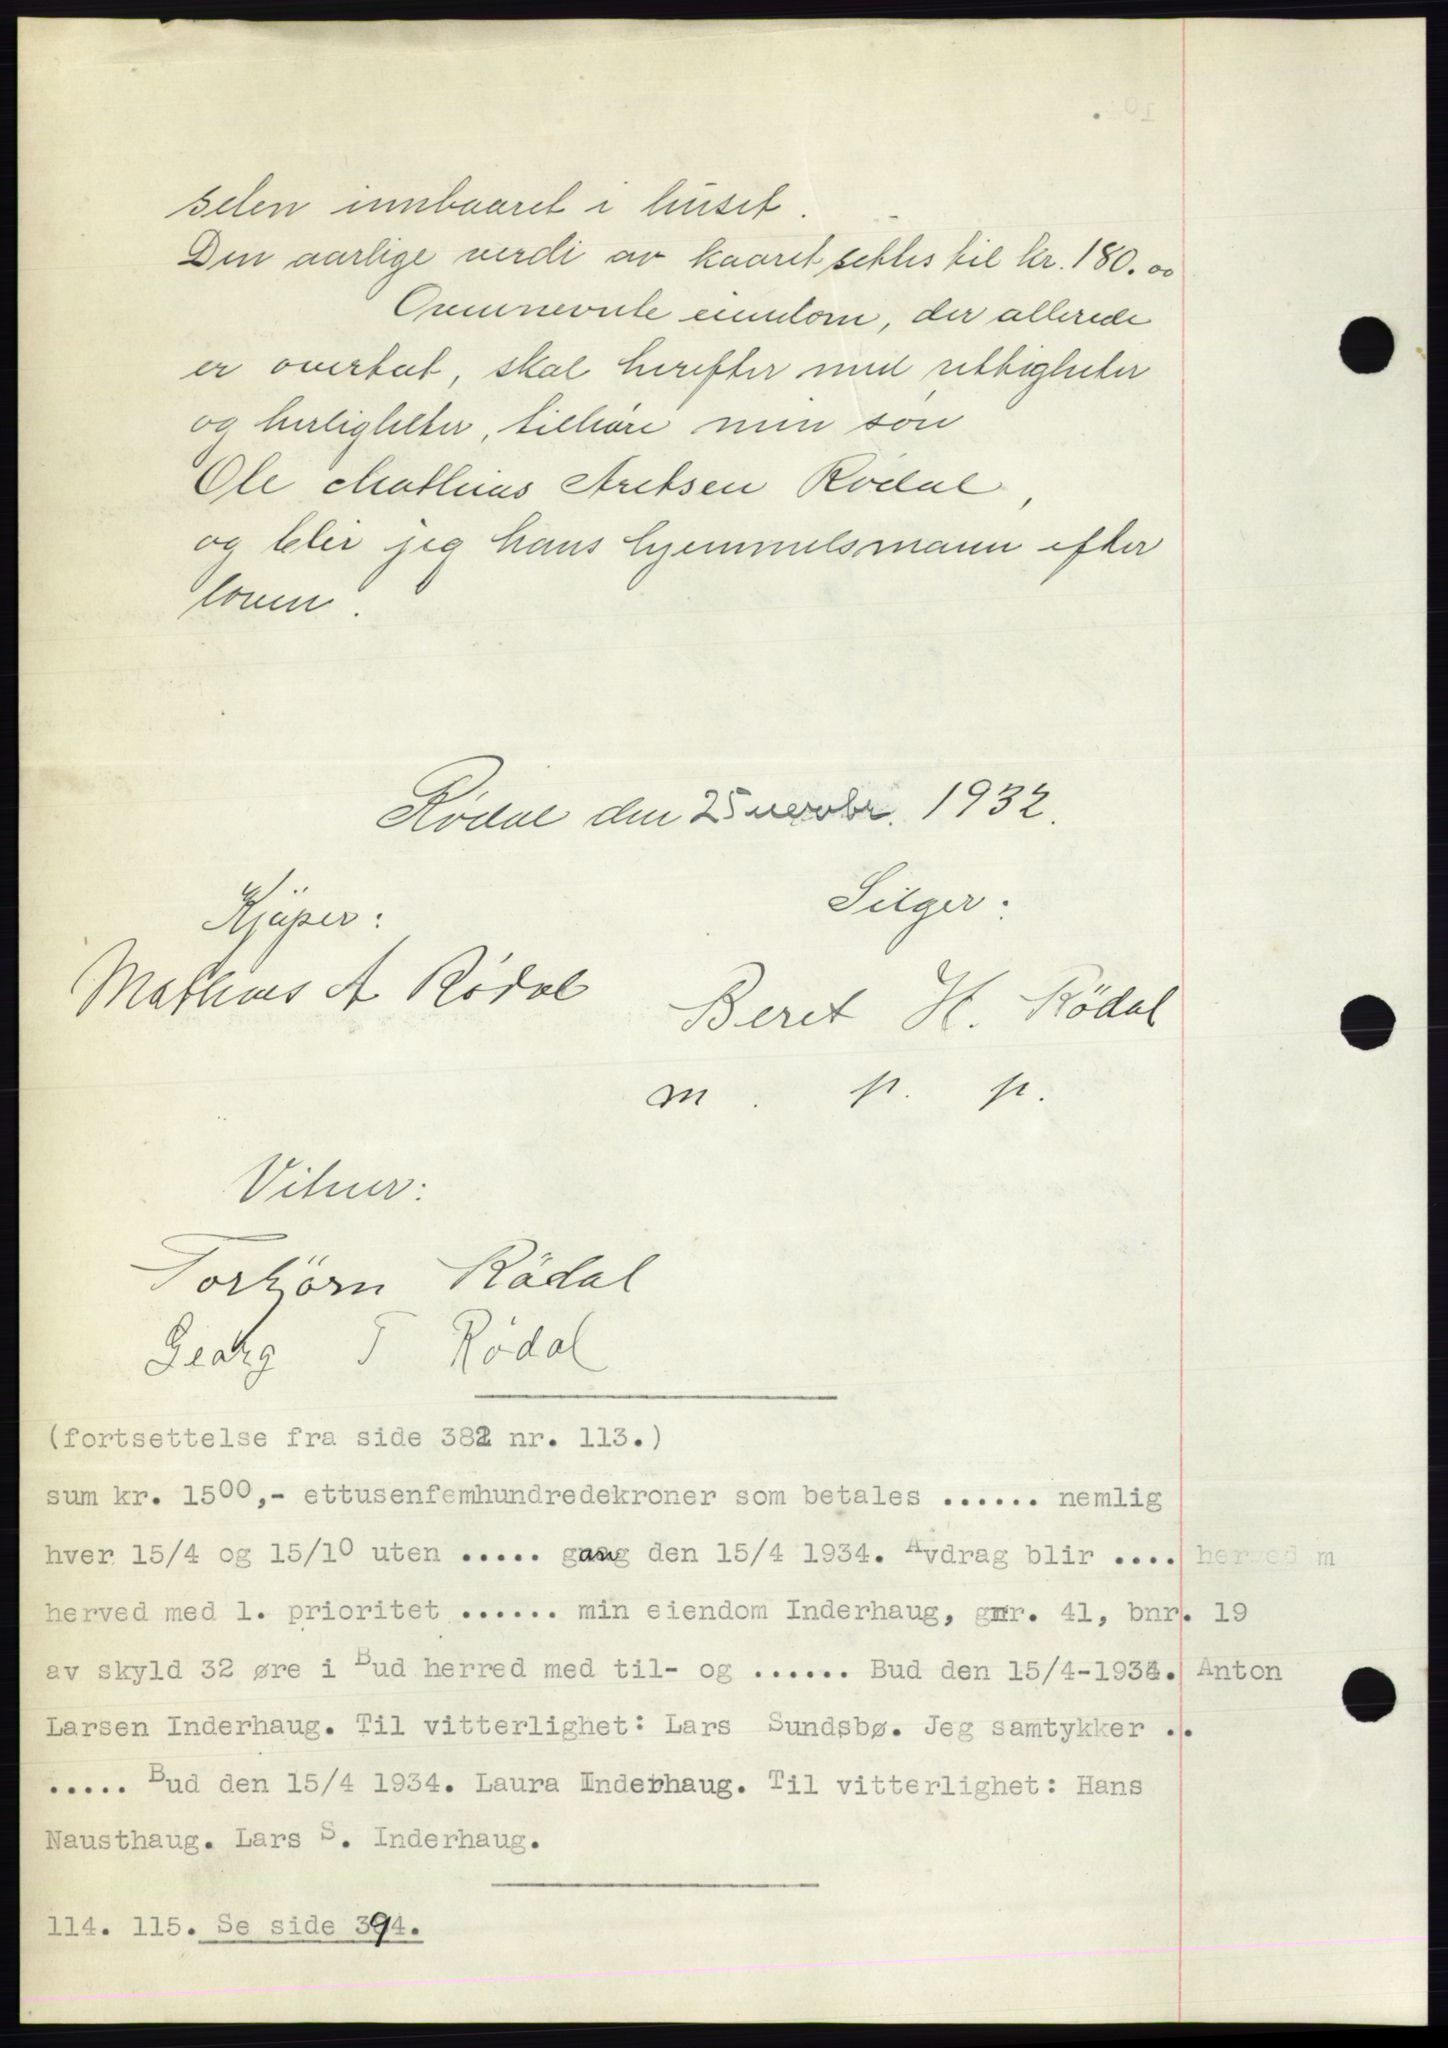 selen innbaaret i huset.
Den aarlige verdi av kaaret settes til kr. 180.00
Ovennevnte eiendom, der allerede
er overtat, skal herefter med rettigheter
og herligheter, tilhøre min søn
Ole Mathias Aretsen Rødal,
og blir jeg hans hjemmelsmann efter
loven.
Rødal den 25 novbr. 1932.
Kjøper: Selger:
Mathias A Rødal Beret H. Rödal
m. p. p.
Vitner:
Torbjørn Rödal
Georg T Rødal
(fortsettelse fra side 382 nr. 113.)
sum kr. 1500,- ettusenfemhundredekroner som betales ...... nemlig
hver 15/4 og 15/10 uten ..... gang den 15/4 1934. Avdrag blir .... herved m
herved med 1. prioritet ...... min eiendom Inderhaug, gnr. 41, bnr. 19
av skyld 32 øre i Bud herred med til- og ...... Bud den 15/4-1934. Anton
Larsen Inderhaug. Til vitterlighet: Lars Sundsbø. Jeg samtykker ..
..... Bud den 15/4 1934. Laura Inderhaug. Til vitterlighet: Hans
Nausthaug. Lars S. Inderhaug.
114. 115. Se side 394.